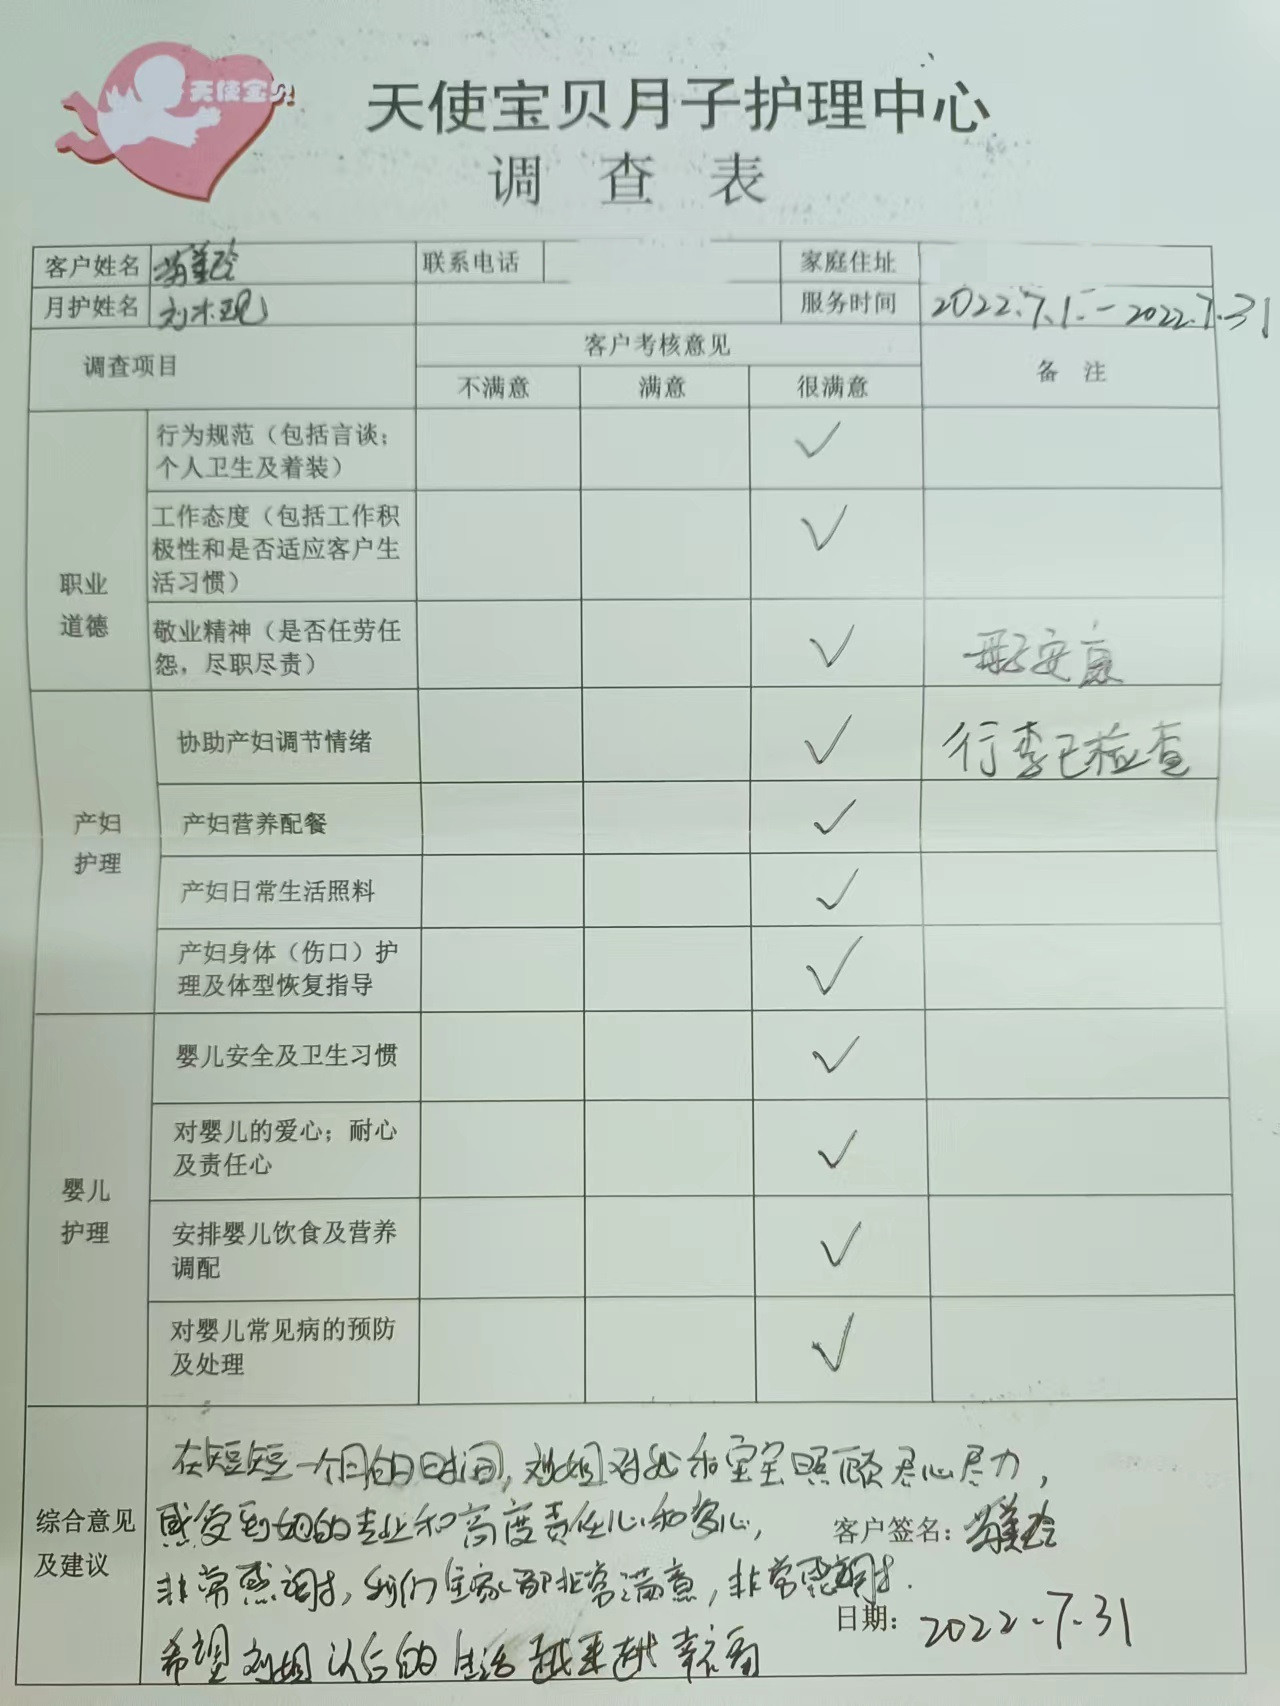 天使宝贝
天使宝贝月子护理中心
调 查 表
客户姓名
联系电话
家庭住址
月护姓名 刘木现
服务时间 2022.7.1.-2022.7.31
调查项目
客户考核意见
备 注
不满意 满意 很满意
职业
道德
行为规范（包括言谈；
个人卫生及着装）
√
工作态度（包括工作积
极性和是否适应客户生
活习惯）
√
敬业精神（是否任劳任
怨，尽职尽责）
√
安康
产妇
护理
协助产妇调节情绪
√
行李已检查
产妇营养配餐
√
产妇日常生活照料
√
产妇身体（伤口）护
理及体型恢复指导
√
婴儿
护理
婴儿安全及卫生习惯
√
对婴儿的爱心；耐心
及责任心
√
安排婴儿饮食及营养
调配
√
对婴儿常见病的预防
及处理
√
综合意见
及建议
在短短一个月的时间，刘姐对我和宝宝照顾尽心尽力，
感受到她的专业和高度责任心和爱心，
非常感谢，我们全家都非常满意，非常感谢.
希望刘姐以后的生活越来越幸福
客户签名：
日期： 2022.7.31